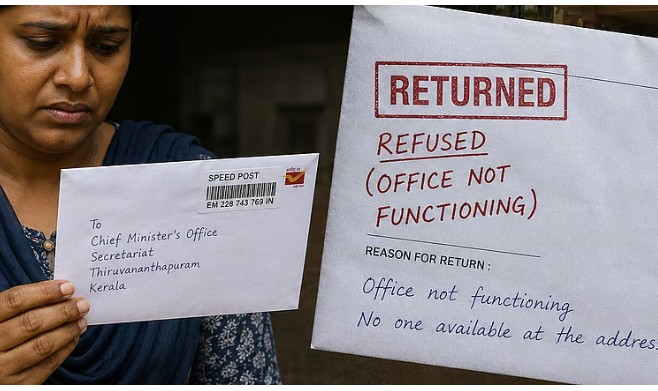 SPEED POST
EM 228 743 769 IN
To
Chief Minister's Office
Secretariat
Thiruvananthapuram
Kerala
RETURNED
REFUSED
(OFFICE NOT
FUNCTIONING)
REASON FOR RETURN :
Office not functioning
No one available at the addres